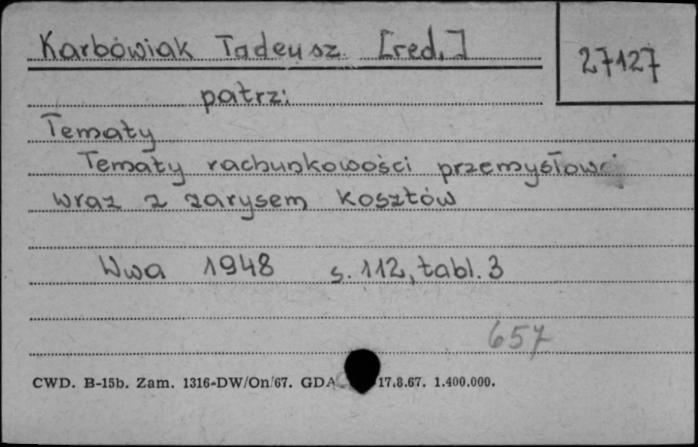 Karbowiak Tadeusz [red.]
27127
patrz:
Tematy
Tematy rachunkowości przemysłowej
wraz z zarysem kosztów
Wwa 1948 s. 112, tabl. 3
657
CWD. B-15b. Zam. 1316-DW/On/67. GDA 17.8.67. 1.400.000.